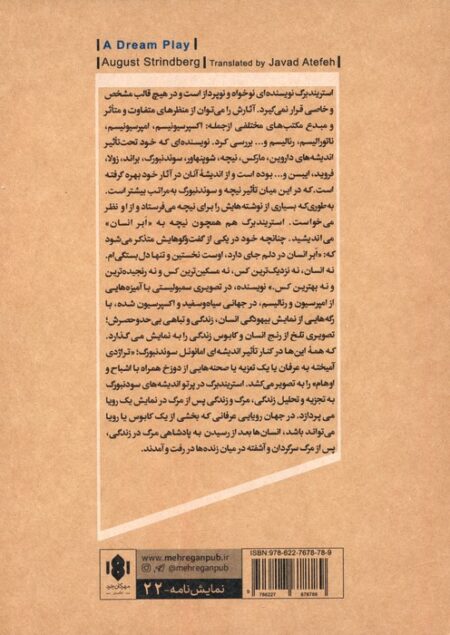 A Dream Play
August Strindberg | Translated by Javad Atefeh
استریندبرگ نویسنده‌ای نوخواه و نوپرداز است و در هیچ قالب مشخص
و خاصی قرار نمی‌گیرد. آثارش را می‌توان از منظرهای متفاوت و متأثر
و مبدع مکتب‌های مختلفی ازجمله: اکسپرسیونیسم، امپرسیونیسم،
ناتورالیسم، رئالیسم و... بررسی کرد. نویسنده‌ای که خود تحت‌تأثیر
اندیشه‌های داروین، مارکس، نیچه، شوپنهاور، سوندنبورگ، براند، زولا،
فروید، ایبسن و... بوده است و از اندیشهٔ آنان در آثار خود بهره گرفته
است. که در این میان تأثیر نیچه و سوندنبورگ به‌مراتب بیشتر است.
به‌طوری‌که بسیاری از نوشته‌هایش را برای نیچه می‌فرستاد و از او نظر
می‌خواست. استریندبرگ هم همچون نیچه به "ابر انسان"
می‌اندیشید. چنانچه خود در یکی از گفت‌وگوهایش متذکر می‌شود
که: «ابر انسان در دلم جای دارد، اوست نخستین و تنها دل بستگی‌ام.
نه انسان، نه نزدیک‌ترین کس، نه مسکین‌ترین کس و نه رنجیده‌ترین
و نه بهترین کس.» نویسنده، در تصویری سمبولیستی با آمیزه‌هایی
از امپرسیون و رئالیسم، در جهانی سیاه‌وسفید و اکسپرسیون شده، با
رگه‌هایی از نمایش بیهودگی انسان، زندگی و تباهی بی‌حدوحصرش؛
تصویری تلخ از رنج انسان و کابوس زندگی را به نمایش می گذارد.
که همهٔ این‌ها در کنار تأثیر اندیشه‌ای امانوئل سوندنبورگ؛ «تراژدی
آمیخته به عرفان یا یک تعزیه با صحنه‌هایی از دوزخ همراه با اشباح و
اوهام» را به تصویر می‌کشد. استریندبرگ در پرتو اندیشه‌های سودنبورگ
به تجزیه و تحلیل زندگی، مرگ و زندگی پس از مرگ در نمایش یک رویا
می پردازد. در جهان رویایی عرفانی که بخشی از یک کابوس یا رویا
می‌تواند باشد، انسان‌ها بعد از رسیدن به پادشاهی مرگ در زندگی،
پس از مرگ سرگردان و آشفته در میان زنده‌ها در رفت و آمدند.
www.mehreganpub.ir
@mehreganpub
نمایش‌نامه-۲۲
مهرگان خرد
ISBN:978-622-7678-78-9
9 786227 678789